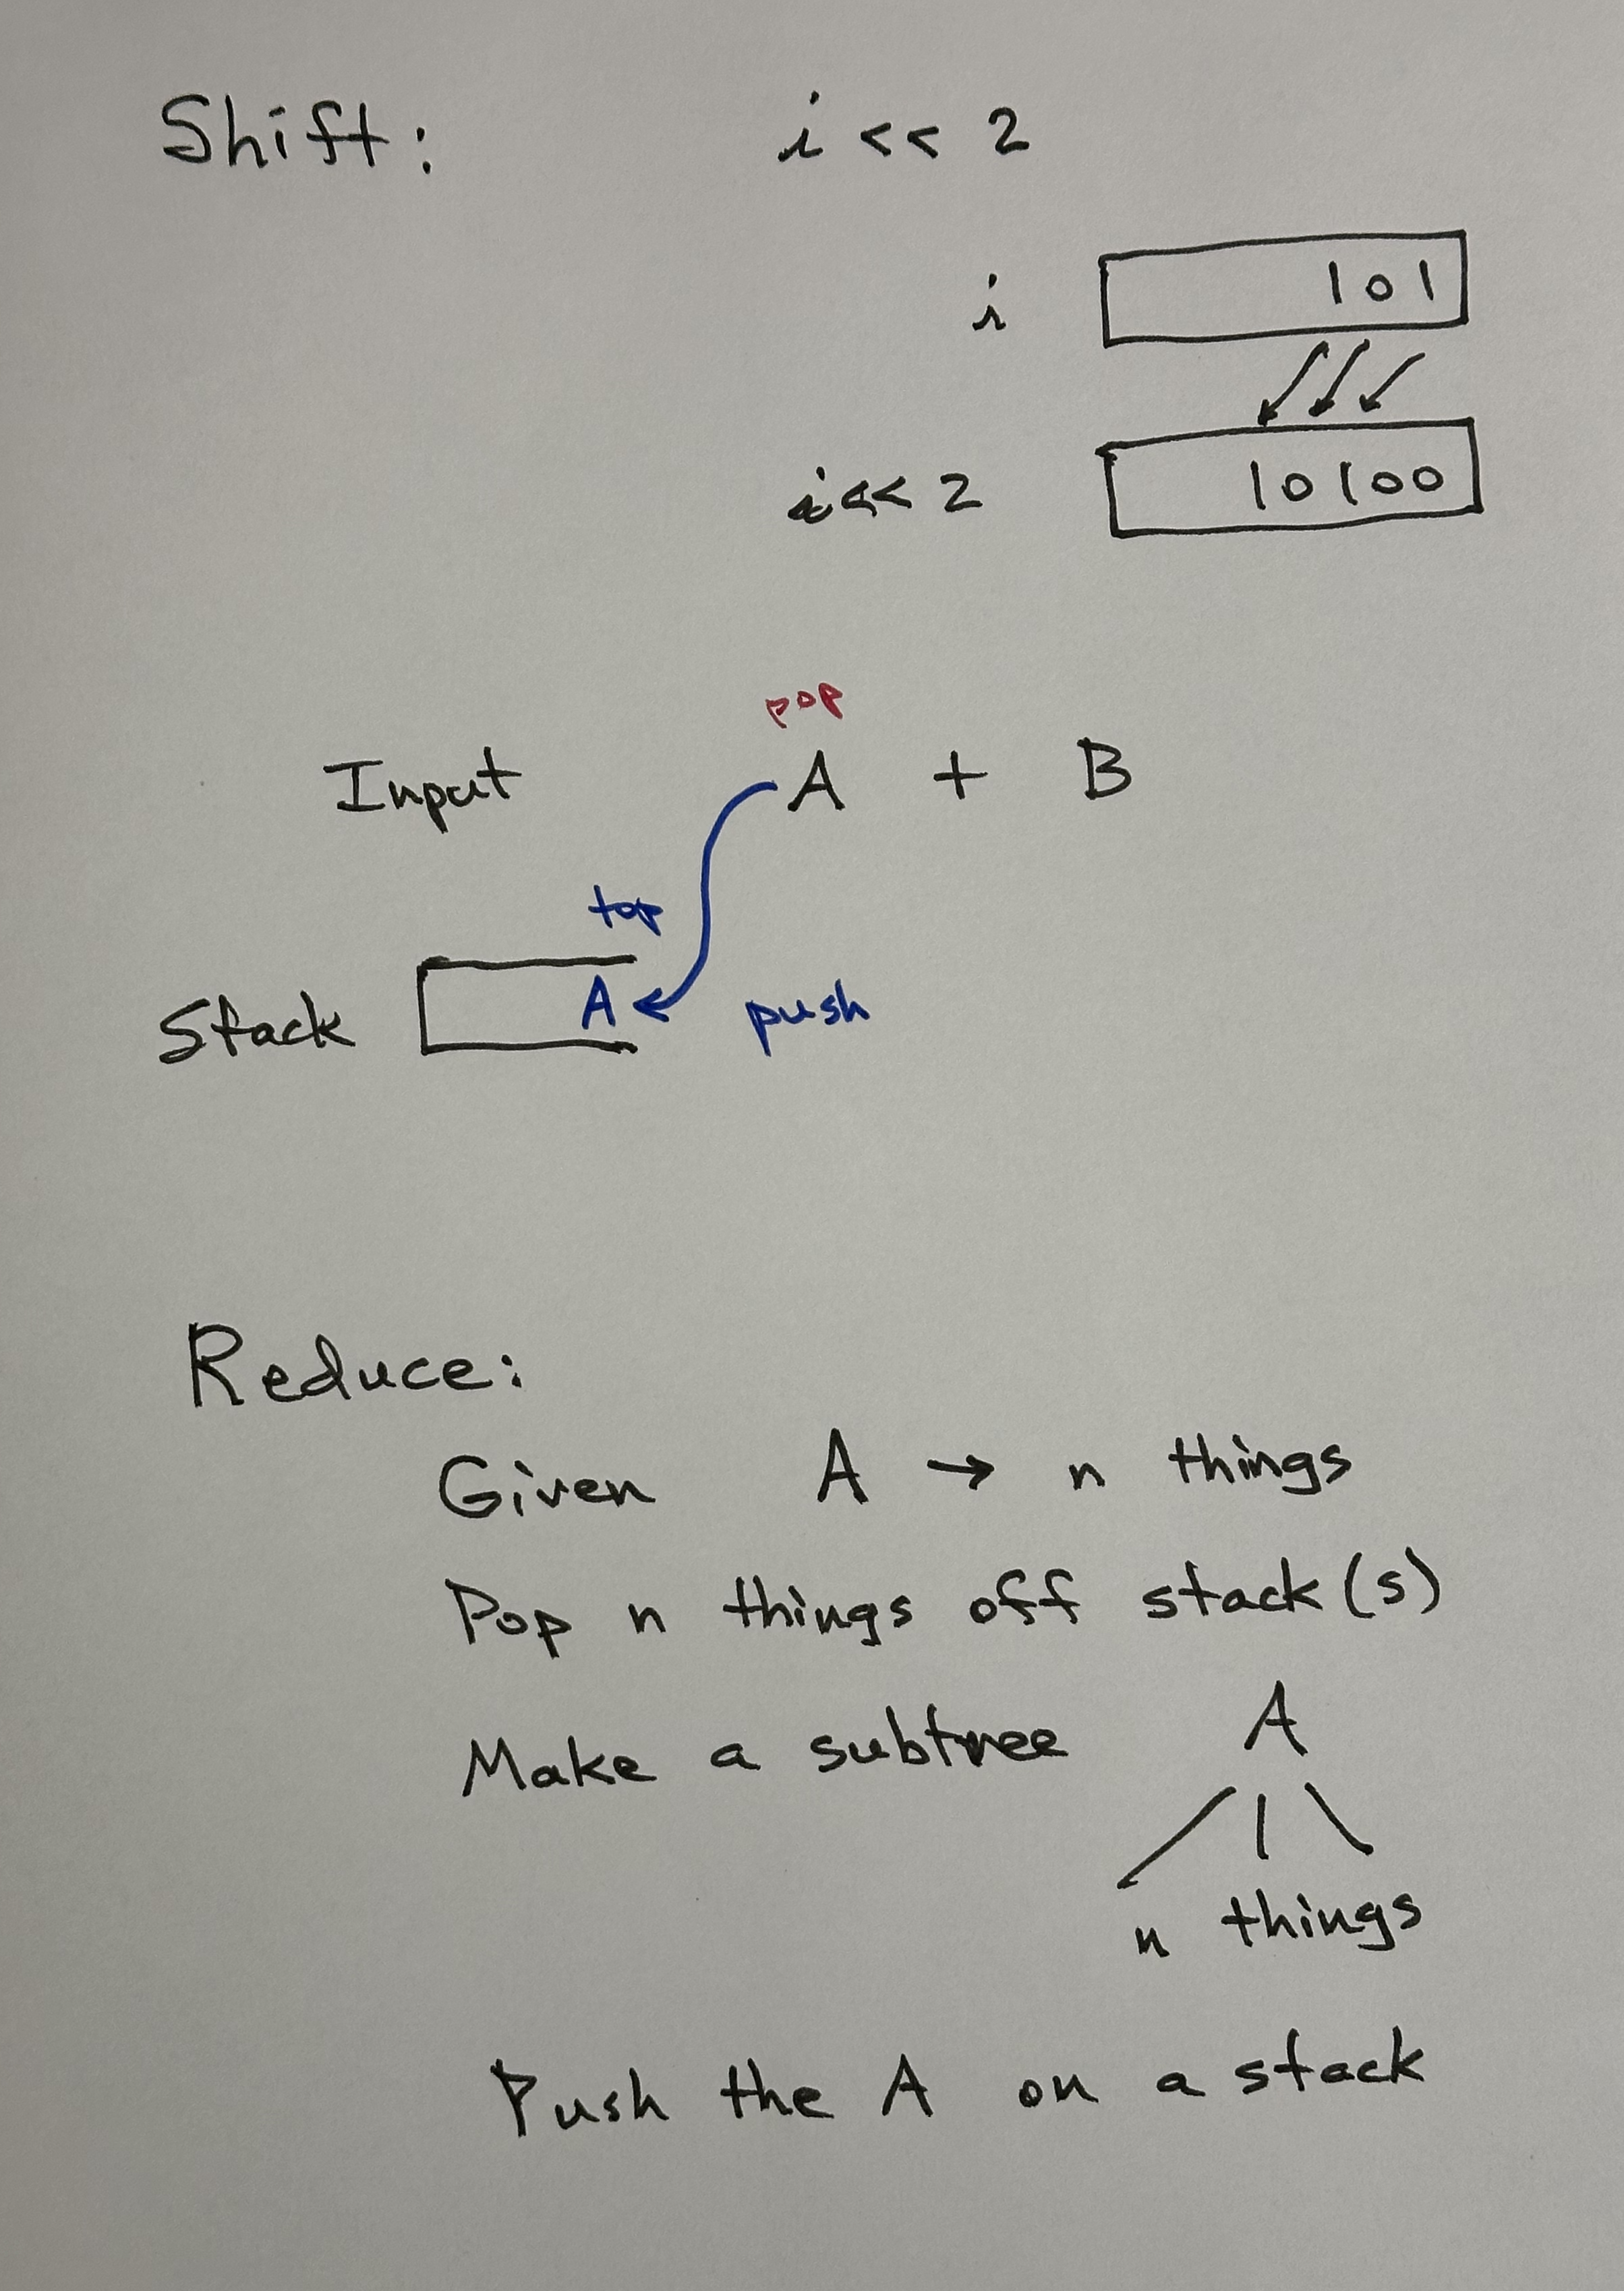 Shift: i << 2
i 101
i << 2 10100
pop
Input A + B
top
Stack A push
Reduce:
Given A → n things
Pop n things off stack(s)
Make a subtree A
n things
Push the A on a stack